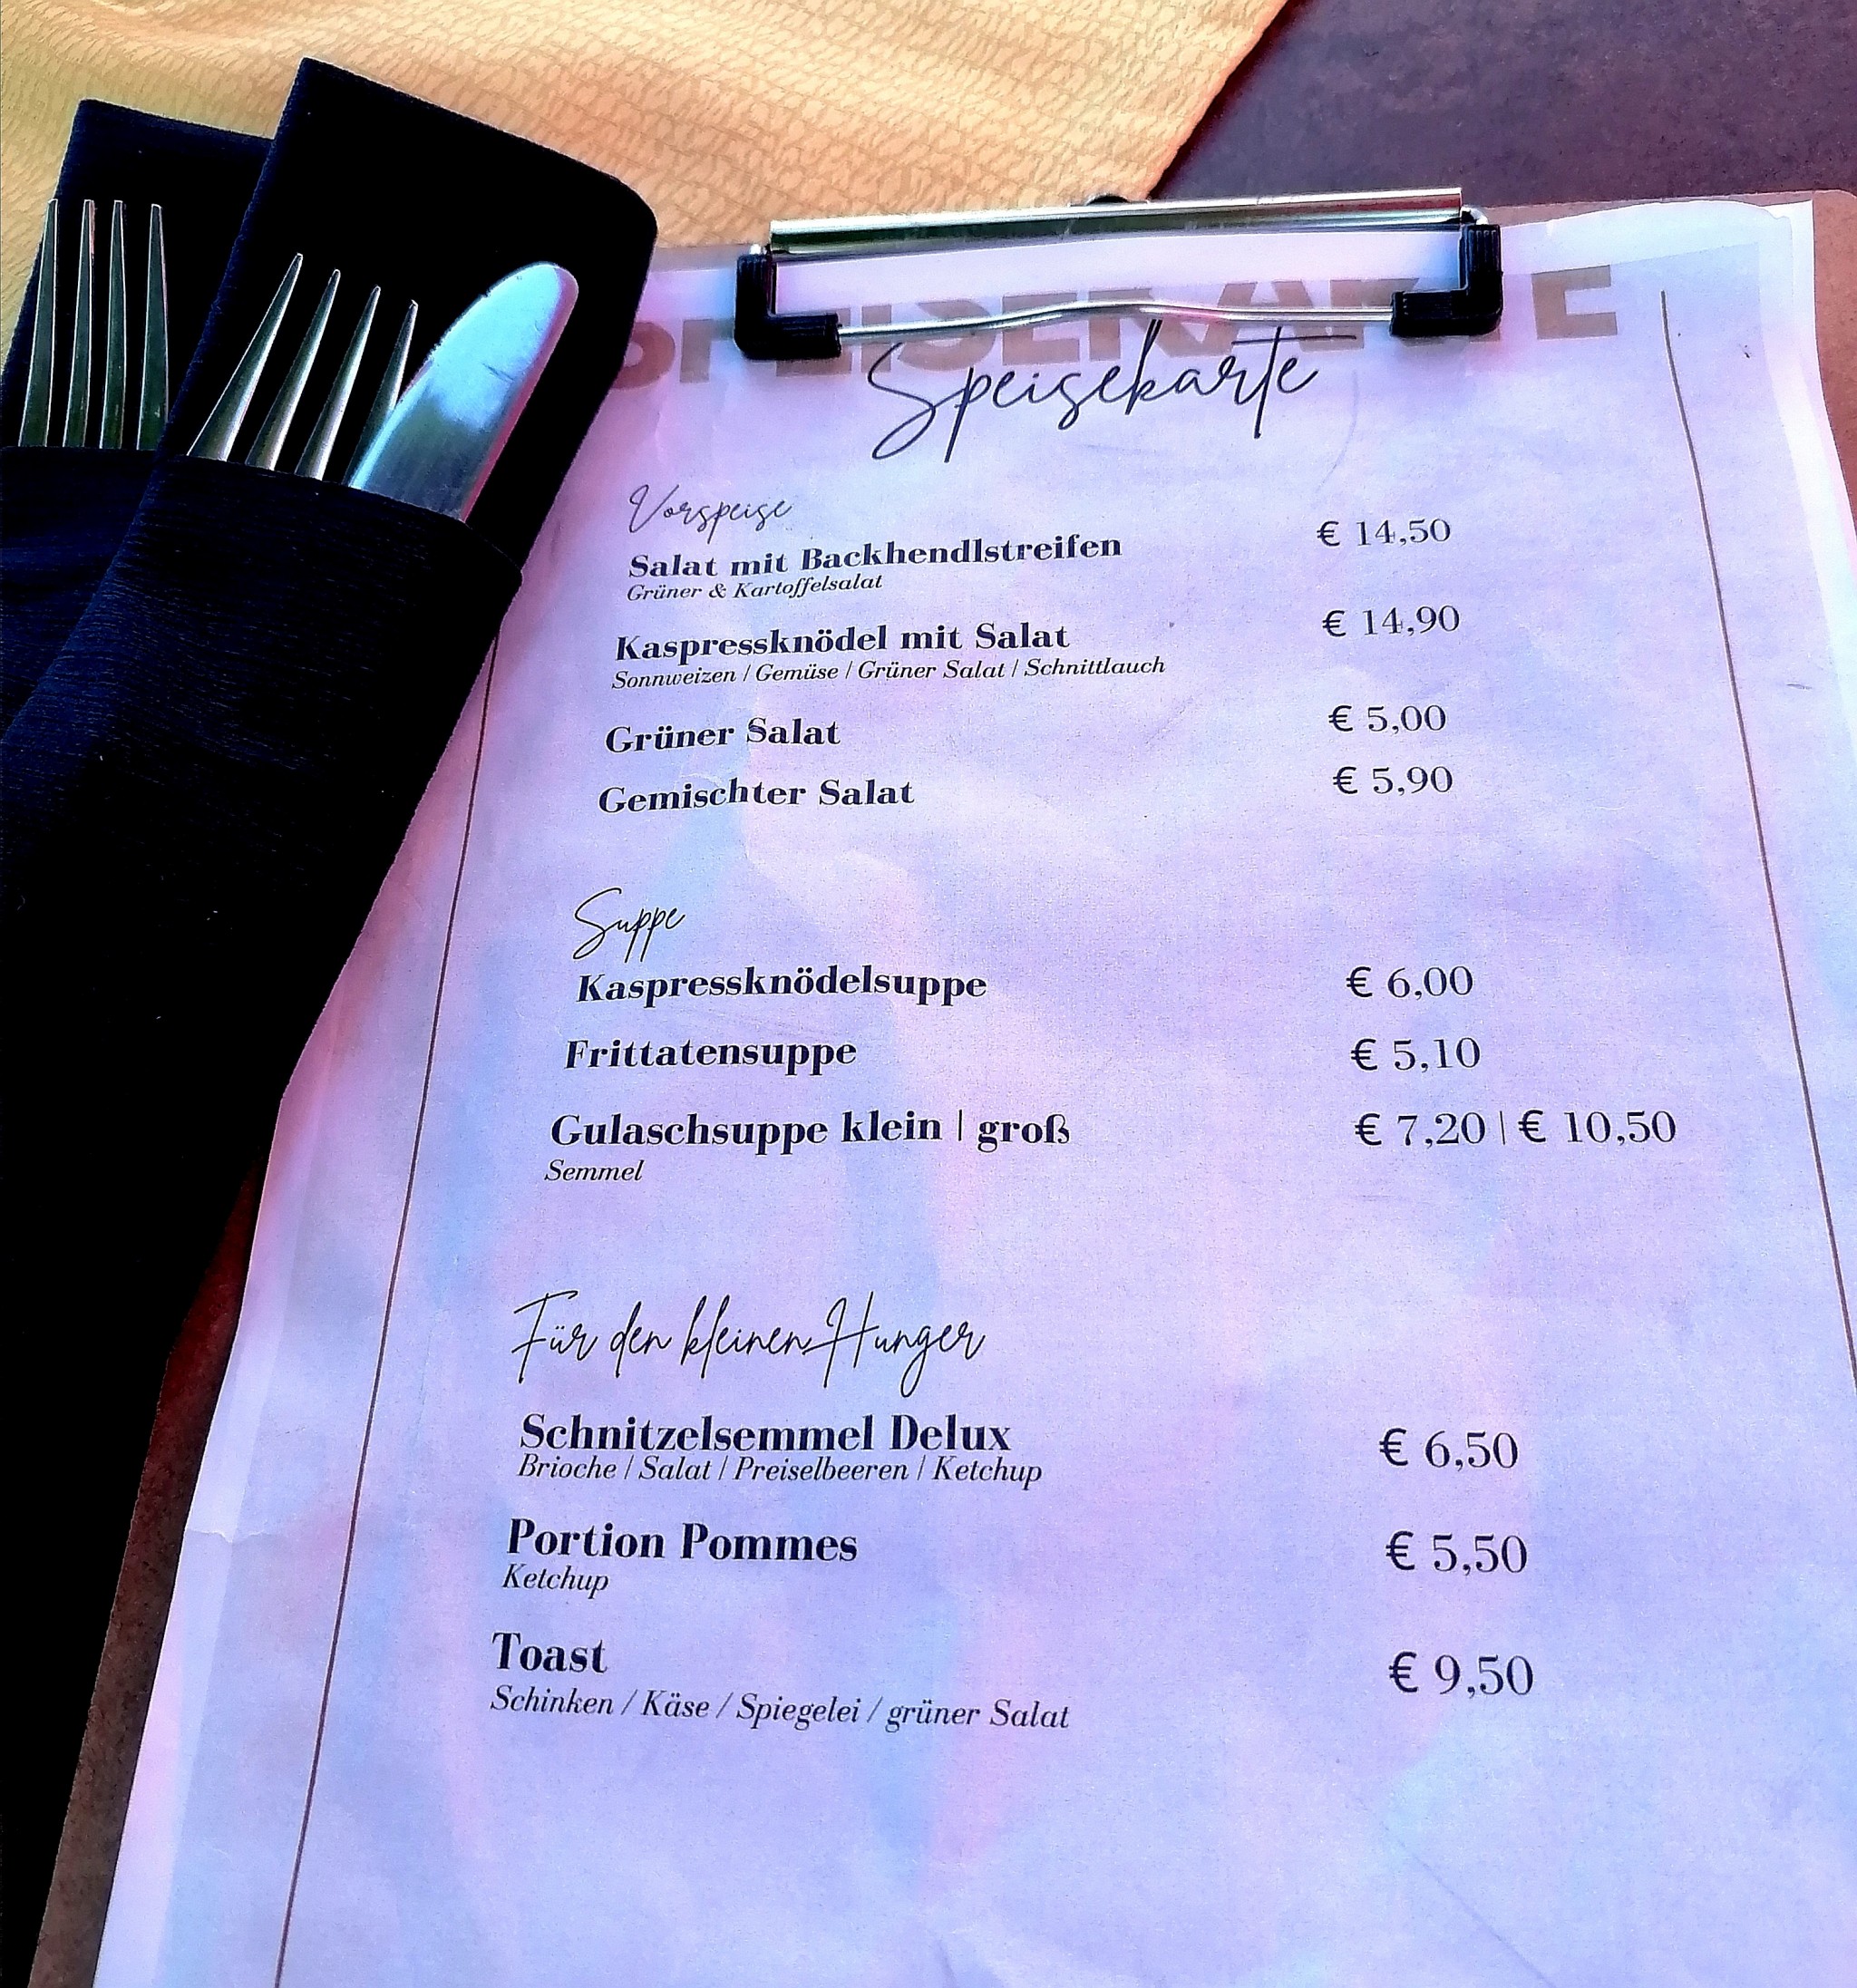 SPEISEKARTE
Speisekarte
Vorspeise
Salat mit Backhendlstreifen € 14,50
Grüner & Kartoffelsalat
Kaspressknödel mit Salat € 14,90
Sonnweizen / Gemüse / Grüner Salat / Schnittlauch
Grüner Salat € 5,00
Gemischter Salat € 5,90
Suppe
Kaspressknödelsuppe € 6,00
Frittatensuppe € 5,10
Gulaschsuppe klein | groß € 7,20 | € 10,50
Semmel
Für den kleinen Hunger
Schnitzelsemmel Delux € 6,50
Brioche / Salat / Preiselbeeren / Ketchup
Portion Pommes € 5,50
Ketchup
Toast € 9,50
Schinken / Käse / Spiegelei / grüner Salat